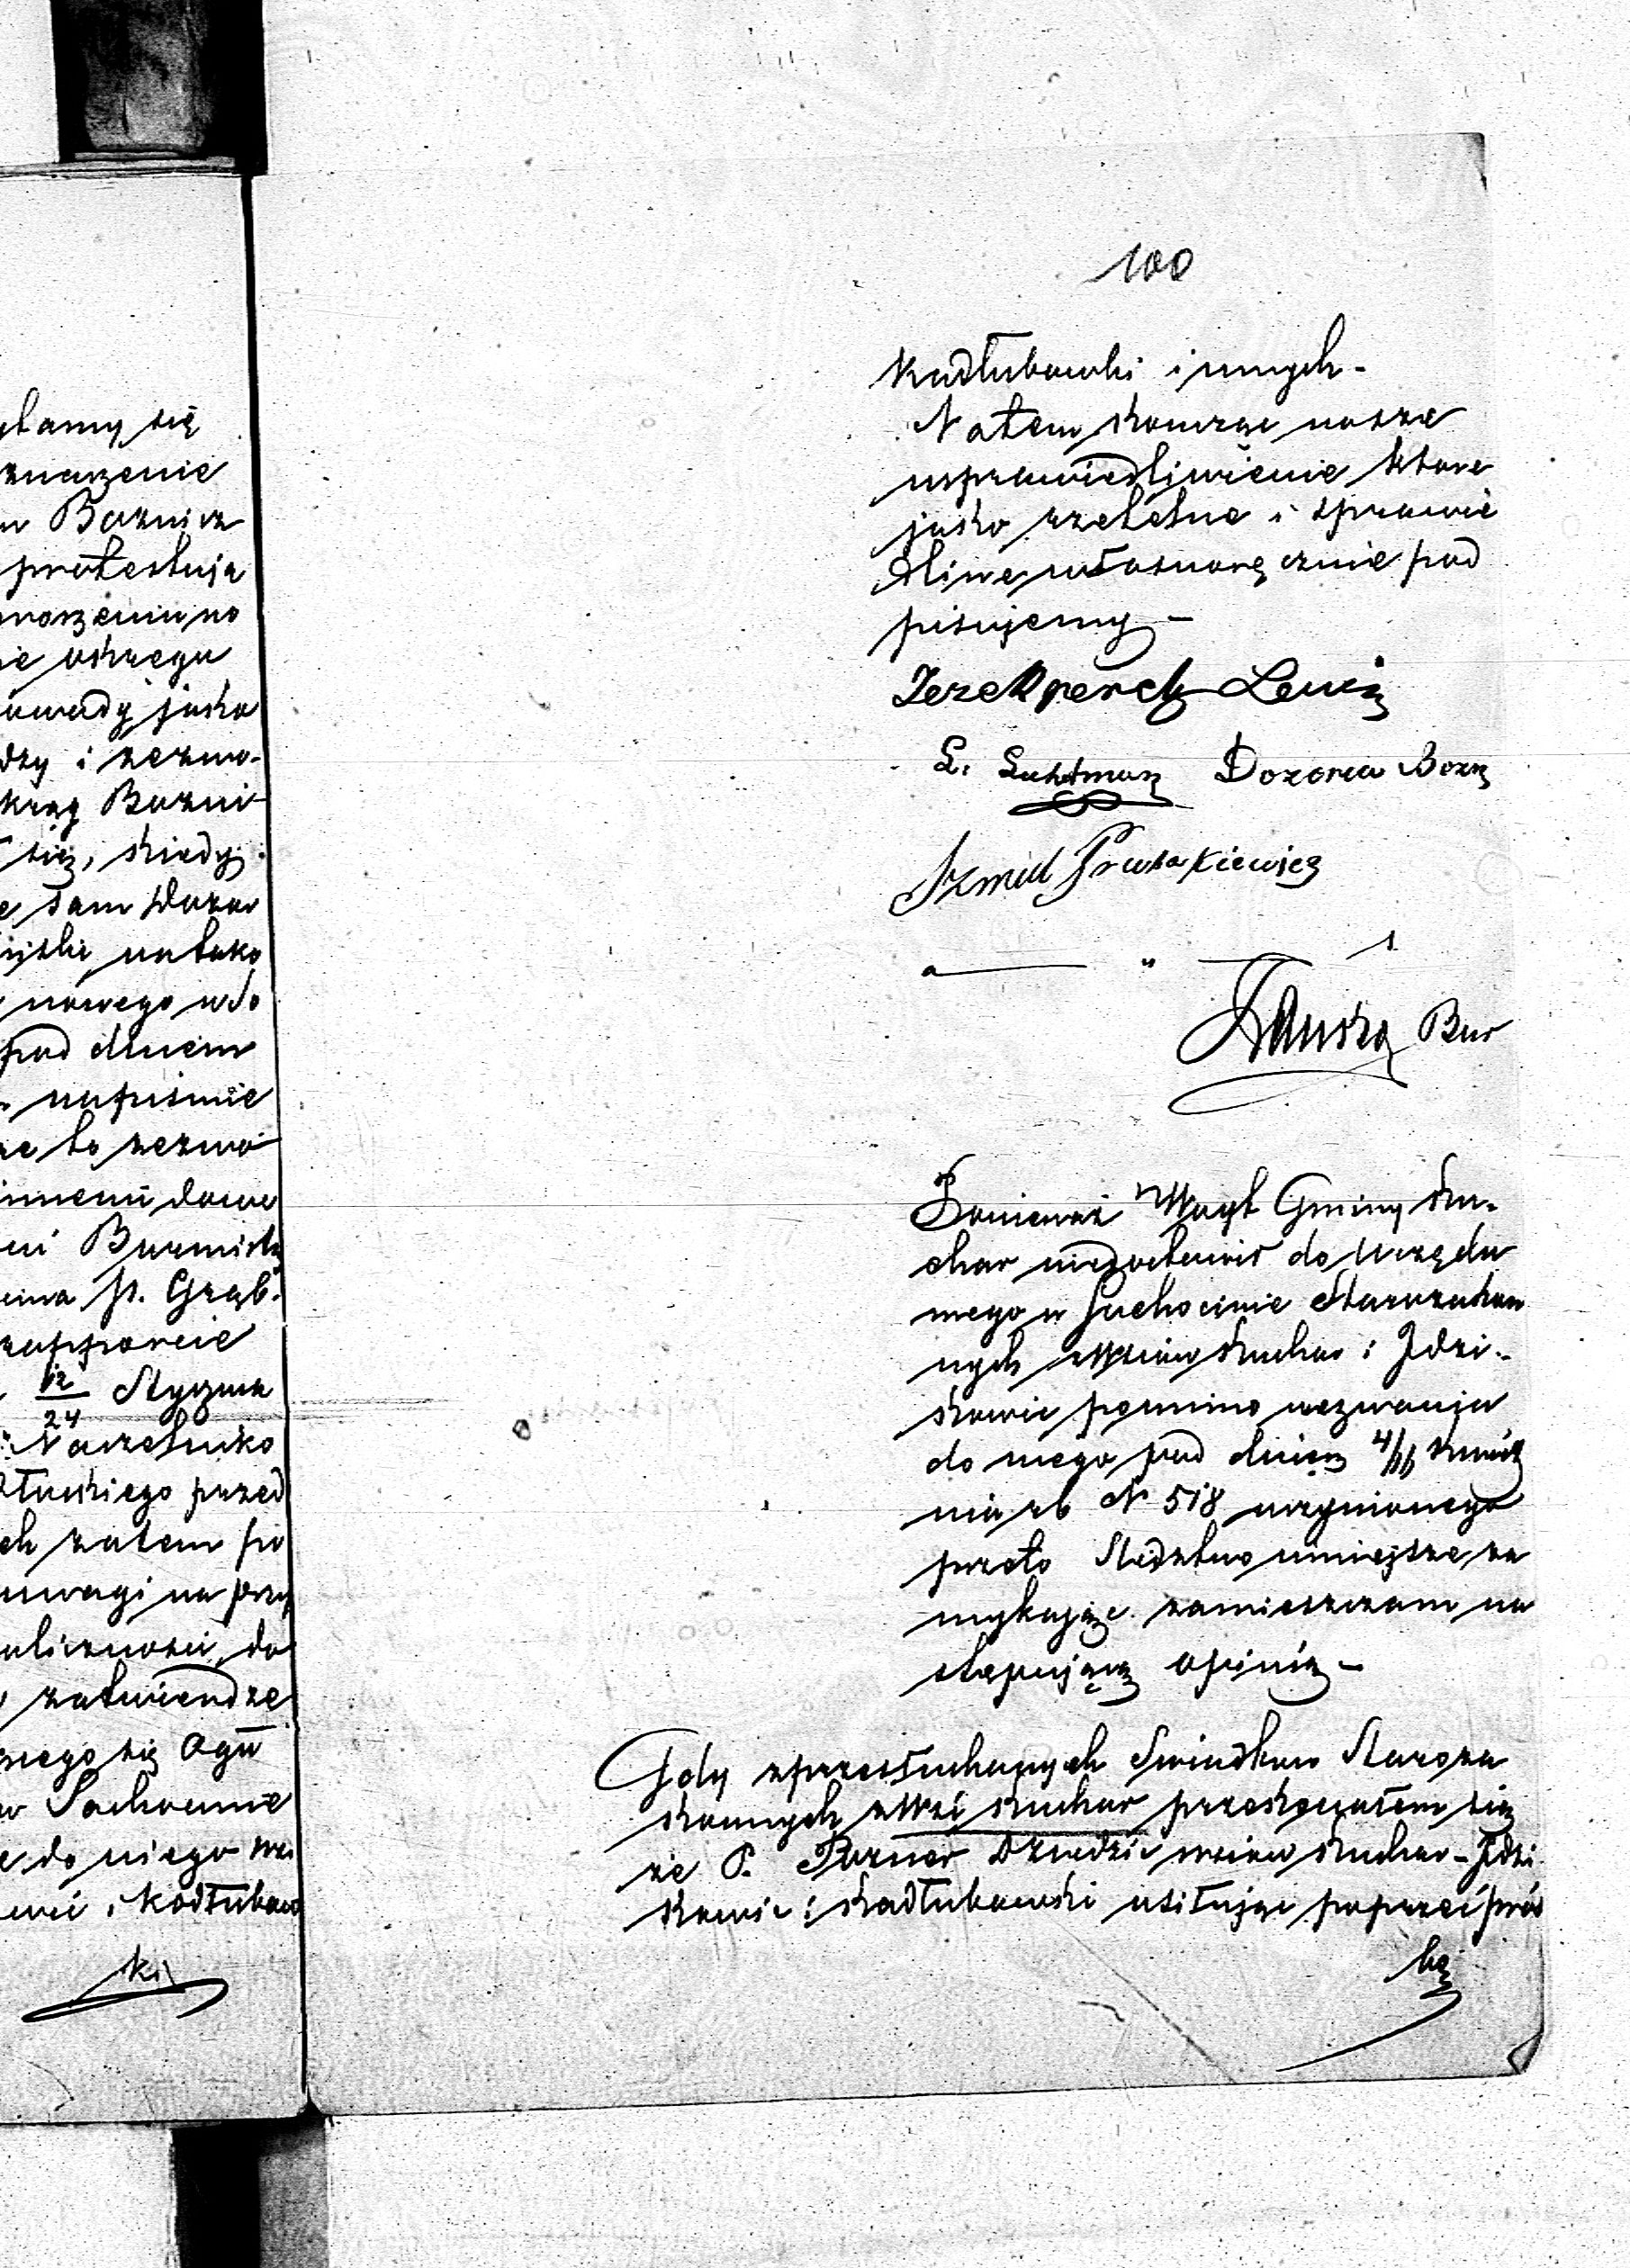 ylamy się
znaczenie
w Boznicz
protestują
noszeniu no
ie okręgu
owady jako
dzy i zezwo-
kręg Bozni-
się, kiedy
e sam Dozor
nateko
nowego w do
pod dniem
na piśmie
ze to zezwo
innemi dowo
mi Burmistrz
p. Grąb.
rapporcie
12/24 Stycznia
Naczelnika
Płtuskiego przed
ch zatem po
uwagi na przy
oliczności, do
zatwierdze
nego się Ogu
w Sochocinie
e do niego wsi
i Kadłubow
ki
100
Kadłubowski i innych -
Natem kończąc nasze
usprawiedliwienie które
jako rzetelne i sprawie
dliwe własnoręcznie pod
pisujemy -
Lewin
L. Lichtman Dozorca Bozn
Szmul
a " 1
Bur
Ponieważ Woyt Gminy Ku-
char niedostawił do Urzędu
mego w Suchocinie Starozakon
nych z Wsiow Kuchar i Idzi-
kowic pomimo wezwania
do niego pod dniem 4/16 Kwiet
nia rb N 518 uczynionego
przeto Sledztwo niniejsze za
mykając zamieszczam na
stępującą opinią -
Gdy z przesłuchanych Swiadkow Staroza
konnych z Wsi Kuchar przekonałem się
że P. Pozner Dziedzic wsiow Kuchar - Idzi
kowic i Kadłubowski usiłując poprzeć proś
bę